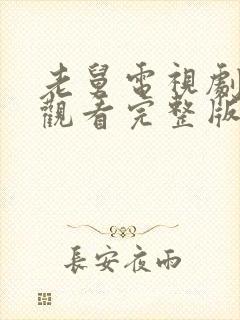 老舅電視劇
觀看完整版
長安夜雨